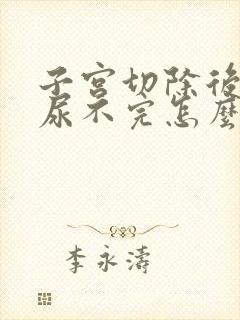 子宮切除後
尿不完怎麼
李永濤